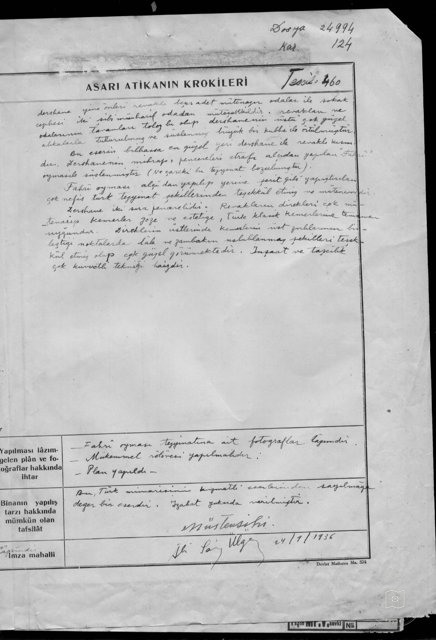 Dosya 24994
Kar. 124
ASARI ATİKANIN KROKİLERİ Tescil: 460
dershane yine önleri revaklı beşer adet mütenazır odalar ile sokak
cephesi iki
odalarının tavanları tuloz olup dershanenin üstü çok güzel
süslenmiş büyük bir kubbe ile örtülmüştür.
Bu eserin bilhassa en güzel yeri dershane ile revaklı kısım
dır. Dershanenin mihrap, pencereleri etrafı alçıdan yapılan Fahri
oymasile süslenmiştir (ve yazık ki bu tezyinat bozulmuştur).
Fahri oyması alçıdan yapılıp yerine şerit gibi yapıştırılan
çok nefis türk tezyinat şekillerinden teşekkül etmiş
Dershane iki sıra pencerelidir. Revakların direkleri çok mü
tenasip kemerler göze ve estetiğe, Türk klasik kemerlerine tamamen
uygundur. Direklerin üstlerinde kemerlerin
leştiği noktalarda lale ve zambakın şekilleri teşek
kül etmiş olup çok güzel görünmektedir. İnşaat ve taşcılık
çok kuvvetli tekniği haizdir.
Yapılması lâzım-
gelen plân ve fo-
toğraflar hakkında
ihtar
- Fahri oyması tezyinatına ait fotoğraflar lazımdır.
- Mükemmel rölövesi yapılmalıdır.
- Plan yapıldı -
Binanın yapılış
tarzı hakkında
mümkün olan
tafsilât
Bu, Türk mimarisinin kıymetli eserlerinden sayılmağa
değer bir eserdir. İzahat yukarıda verilmiştir.
Müstensihi
İmza mahalli
Ülgen 24/9/1936
Devlet Matbaası Ma. 524